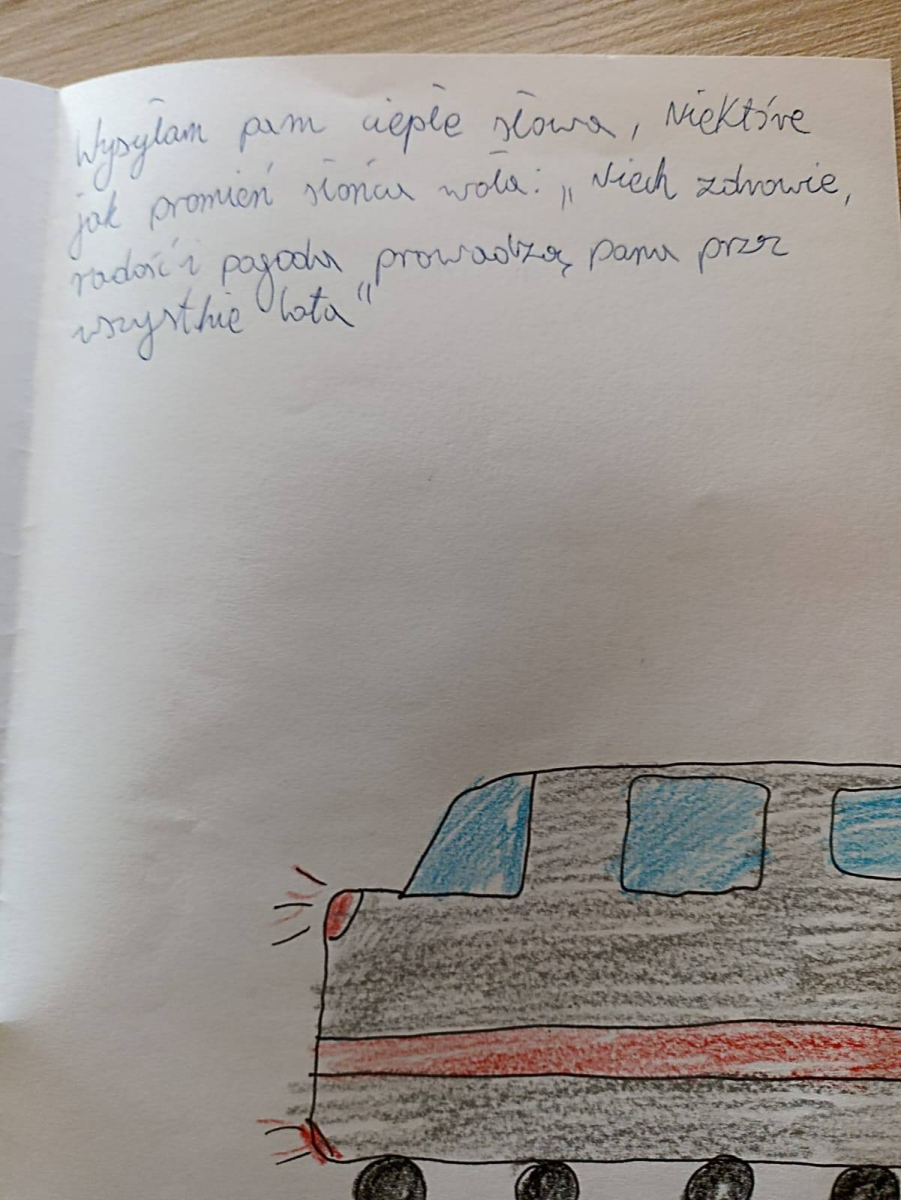 Wysyłam pam ciepłe słowa, Niektóre
jak promień słońca woła: „Niech zdrowie,
radość i pogoda prowadzą pana przez
wszystkie lata"